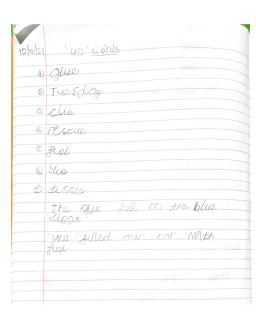 12/5/21 'ue' words
① glue
② Tuesday
③ clue
④ rescue
⑤ fuel
⑥ blue
⑦ tissue
The glue fell on the blue
tissue.
We filled our car with
fuel.